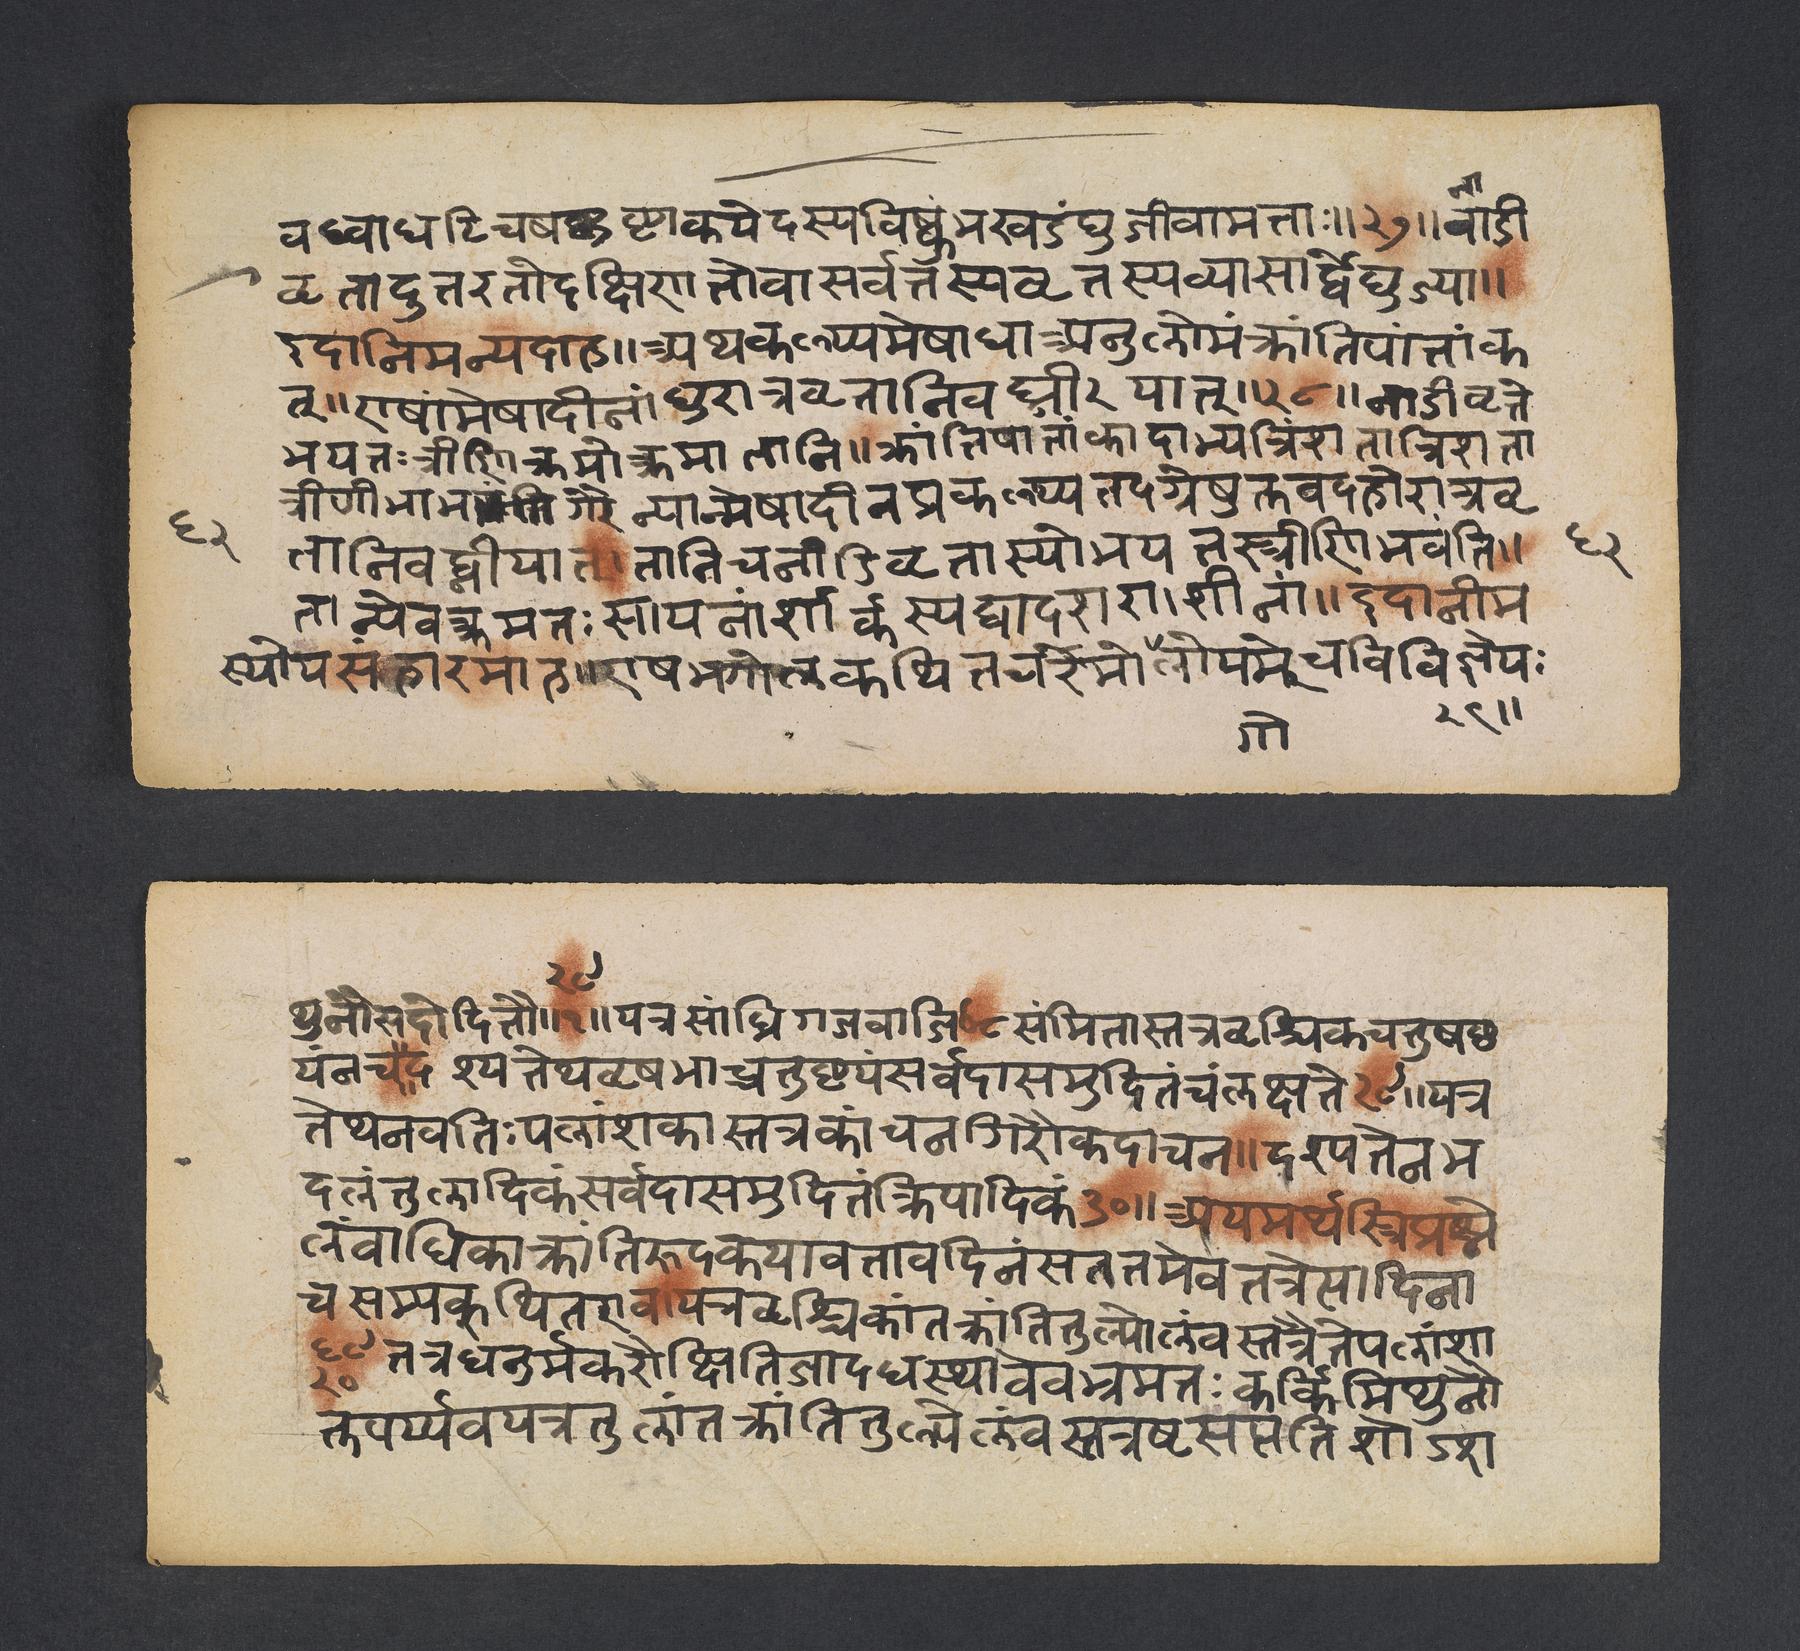 ना
वध्वाघटिचषष्ट्याकयेदस्यविष्कुंभखडंघुजीवामत्ताः॥२७॥वाडी
वृत्तादुत्तरतोदक्षिणतोवासर्वत्तस्यवृत्तस्यव्यासार्द्धेद्युज्या॥
इदानिमन्यदाह॥अथकल्प्यमेषाधाअनुलोमंक्रांतिपांत्तांक
त्॥एषांमेषादीनांद्युरात्रवृत्तानिवध्नीरयात्॥२८॥नाडीवृत्ते
भयत्तःत्रीणिक्रमोक्रमातानि॥क्रांतिषातांकादाभ्यत्रिंशतात्रिशता
त्रीणीभाम न्यान्मेषादीनप्रकल्प्यतदग्रेषुक्तवदहोरात्रवृ
६२
तानिवध्नीयात।तानिचनाडिवृत्तास्योभयतस्त्रीणिभवंति॥
६२
तान्येवक्रमत्तःसायनांशार्कस्यद्वादशराशीनां॥इदानीम
स्योपसंहारमाह॥एषभगोलकथितचरेमोलोयमेचविविज्ञेयः
गो
२९॥
२९
थुनौसदोदितौ॥१॥यत्रसांघ्रिगजवाजि७८संमितास्तत्रवृश्चिकचतुषष्ठ
यंनचदृश्यतेथवृषभाच्चतुष्टयंसर्वदासमुदितंचंलक्षते२९॥यत्र
तेथनवतिःपलांशकास्तत्रकांचनगिरौकदाचन॥दृश्यतेनभ
दलंतुलादिकंसर्वदासमुदितंक्रियादिकं३०॥अयमर्थस्त्रिप्रष्णे
लंवाधिकाक्रांतिरूदकयावत्तावद्दिनंसततमेवतत्रेत्यादिना
चसम्यकथितएव।यत्रवृश्चिकांतक्रांतितुल्योलंवस्तत्रैतेपलांशा
६९
२०
तत्रधनुर्मकरौक्षितिजादधस्थावेवभ्रमतः कर्किमिथुनौ
त्तपर्य्येवयत्रतुलांतक्रांतितुल्येलंवस्तत्रष्टसप्ततिशोऽशा